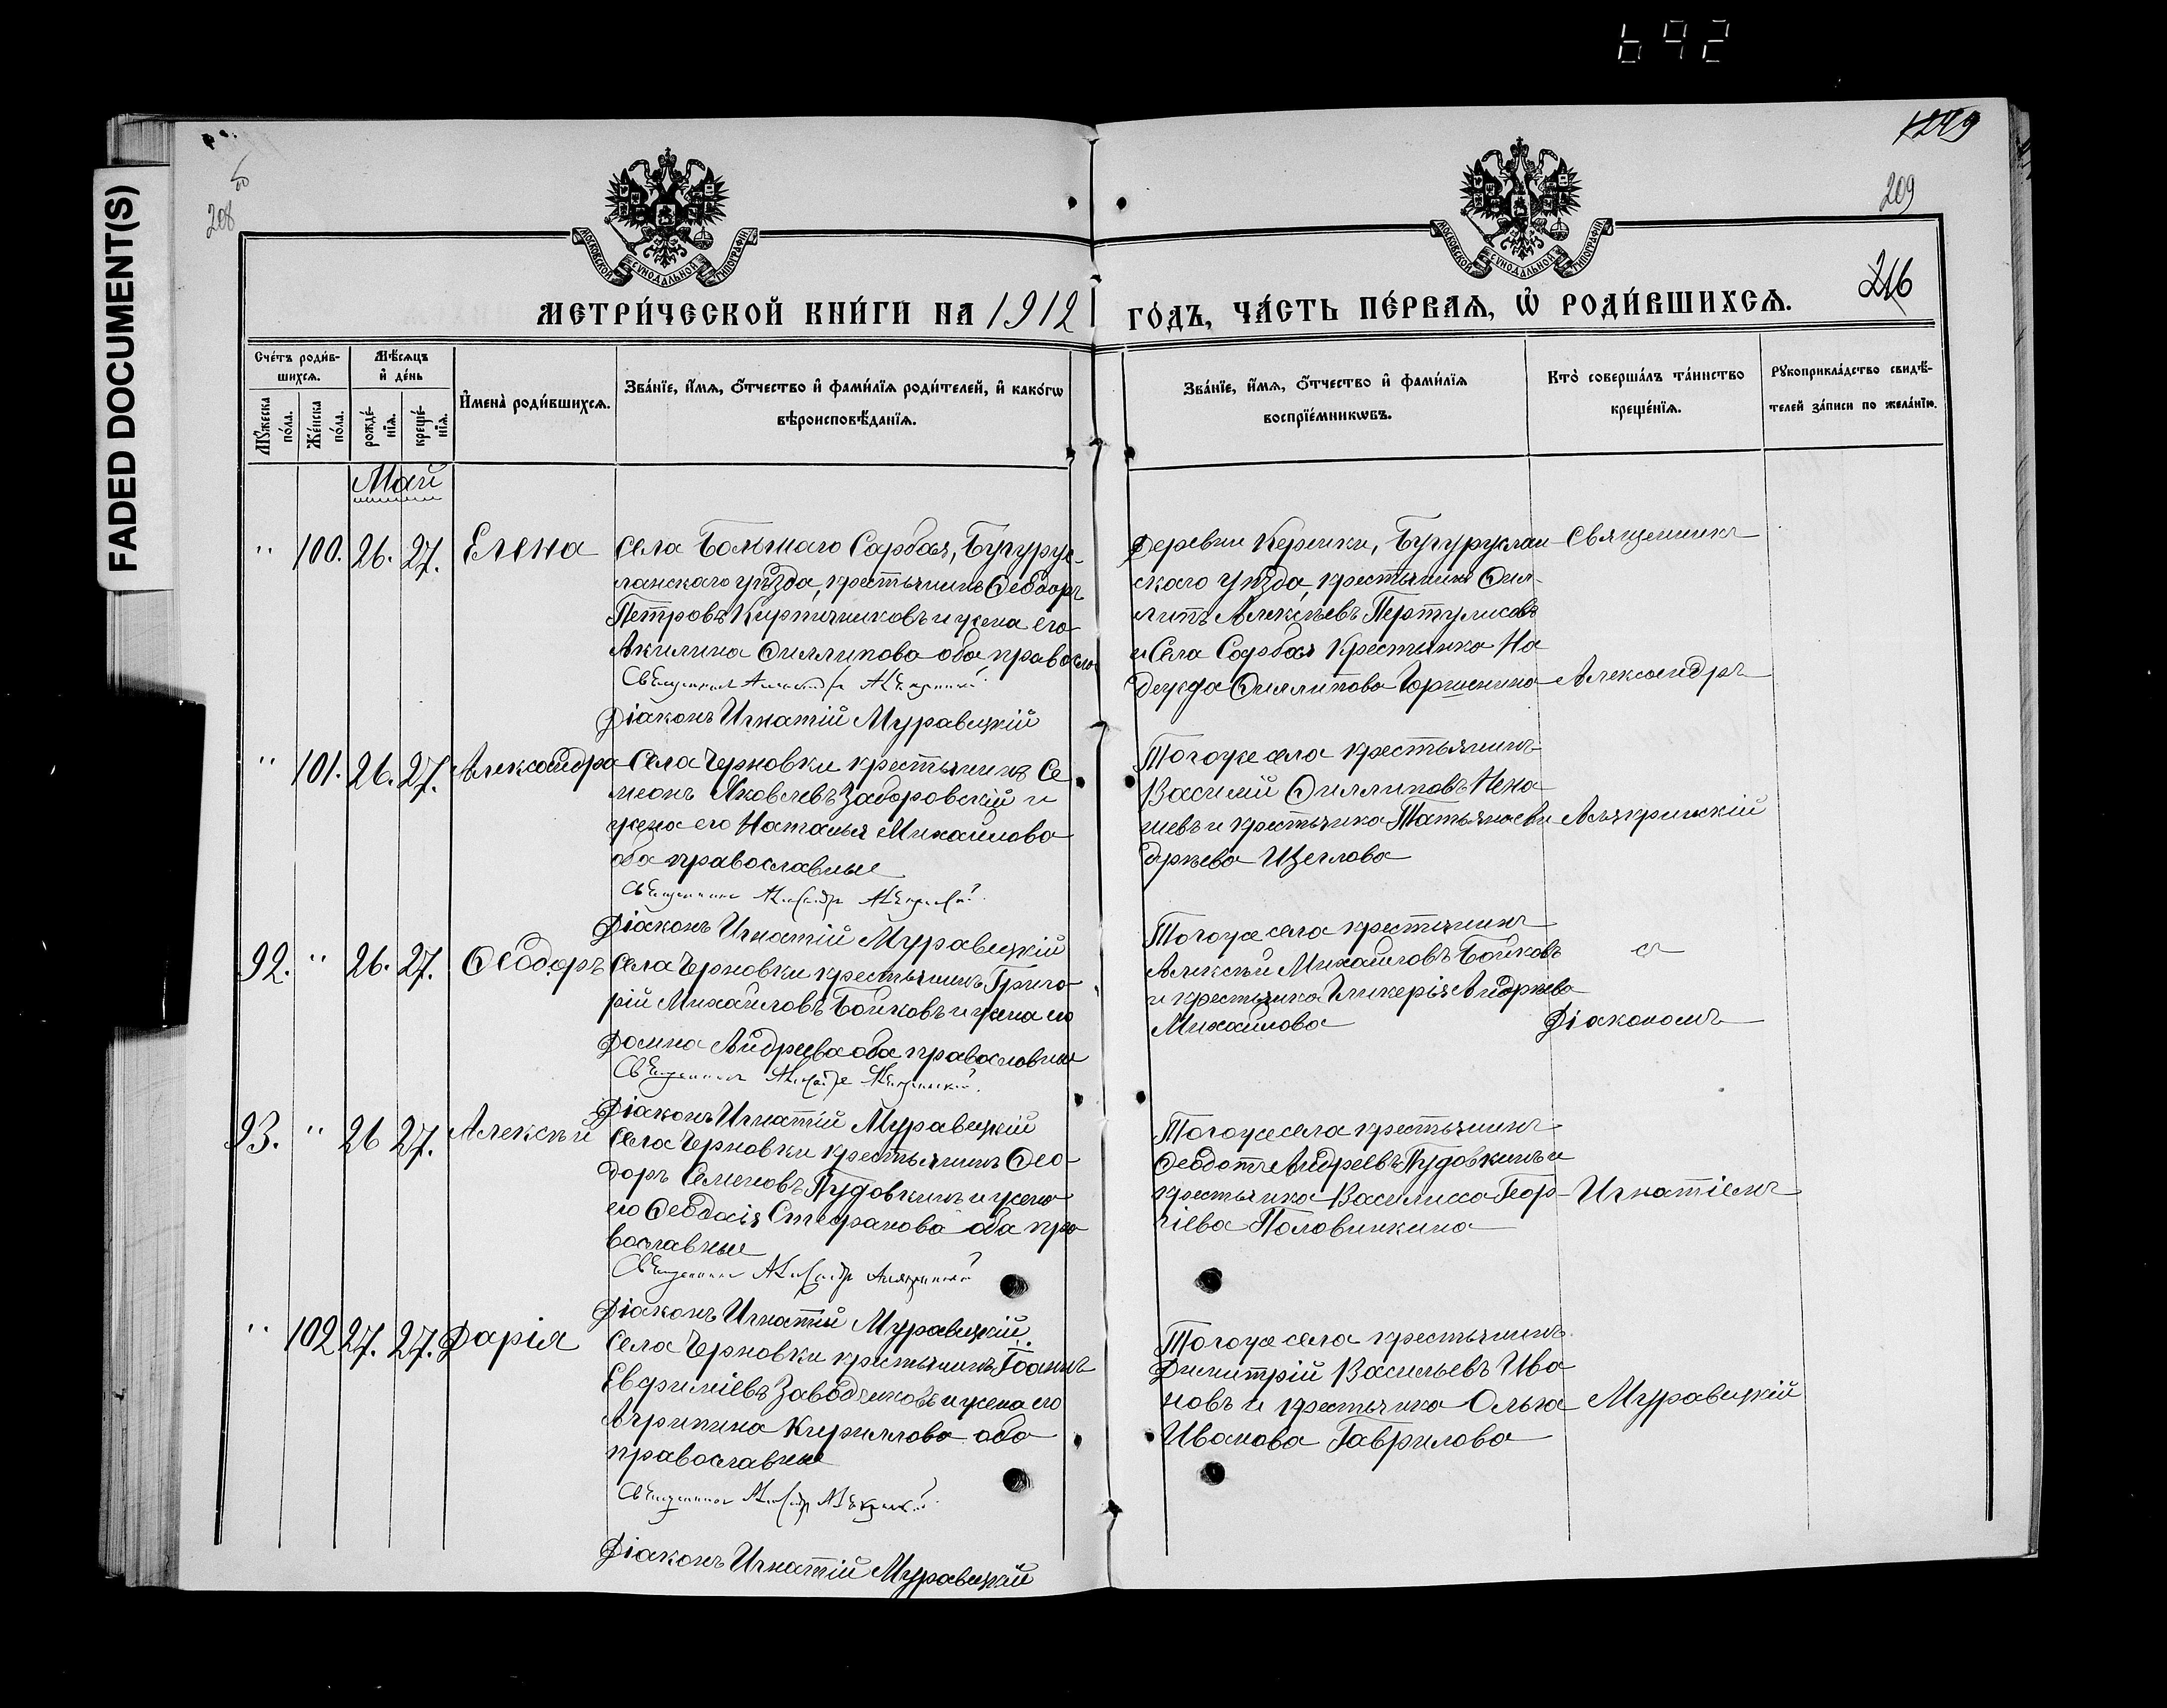 692
FADED DOCUMENT(S)
208
209
249
216
МОСКОВСКОЙ СѴНОДАЛЬНОЙ ТИПОГРАФІИ
МОСКОВСКОЙ СѴНОДАЛЬНОЙ ТИПОГРАФІИ
МЕТРИ́ЧЕСКОЙ КНИ́ГИ НА 1912 ГО́ДЪ, ЧА́СТЬ ПЕ́РВАѦ, Ѡ҆ РОДИ́ВШИХСѦ.
Сче́тъ роди́в-
шихсѧ.
Мꙋ́жеска
по́ла.
Же́нска
по́ла.
Мѣ́сѧцъ
и҆ де́нь
рожде́-
нїѧ.
креще́-
нїѧ.
И҆мена̀ роди́вшихсѧ.
Зва́нїе, и҆́мѧ, ѻ҆́тчество и҆ фами́лїѧ роди́телей, и҆ како́гѡ
вѣроисповѣ́данїѧ.
Зва́нїе, и҆́мѧ, ѻ҆́тчество и҆ фами́лїѧ
воспрїе́мникѡвъ.
Кто̀ соверша́лъ та́инство
креще́нїѧ.
Рꙋкоприкла́дство свидѣ́-
телей за́писи по жела́нїю.
Май
" 100. 26. 27. Елена
Села Большаго Сарбая, Бугурус-
ланскаго уѣзда, крестьянинъ Ѳеодоръ
Петровъ Кирпичниковъ и жена его
Акилина Филиппова оба правосла
Священникъ Александръ
Діаконъ Игнатій Муравицкій
Деревни Керомки, Бугуруслан
скаго уѣзда, крестьянинъ Фил-
липъ Алексѣевъ
и Села Сарбая Крестьянка На
дежда Филлипова Горшенина
" 101. 26. 27. Александра
Села Черновки крестьянинъ Се
меонъ Яковлевъ Заборовскій и
жена его Наталья Михайлова
оба православные
Священникъ Александръ
Діаконъ Игнатій Муравицкій
Тогоже села крестьянинъ
Василій Филлиповъ Нена
шевъ и крестьянка Татьяна Ан
дреева Щеглова
92. " 26. 27. Ѳеодоръ
Села Черновки крестьянинъ Григо
рій Михайловъ Бойковъ и жена его
Домна Андреева оба православные
Священникъ Александръ
Діаконъ Игнатій Муравицкій
Тогоже села крестьянинъ
Алексѣй Михайловъ Бойковъ
и крестьянка Гликерія Андреева
Михайлова
93. " 26 27. Алексѣй
Села Черновки крестьянинъ Ѳео-
доръ Семеновъ Пудовкинъ и жена
его Ѳеодосія Стефанова оба пра
вославные
Священникъ Александръ
Діаконъ Игнатій Муравицкій
Тогоже села крестьянинъ
Ѳеодотъ Андреевъ Пудовкинъ и
крестьянка Василисса Геор-
гіева Половинкина
" 102 27. 27. Дарія
Села Черновки крестьянинъ Іоаннъ
Евфиміевъ Заводчиковъ и жена его
Агрипина Кириллова оба
православные
Священникъ Александръ
Діаконъ Игнатій Муравицкій
Тогоже села крестьянинъ
Димитрій Васильевъ Ива
новъ и крестьянка Ольга
Иванова Гаврилова
Священникъ
Александръ
Алякринскій
съ
Діакономъ
Игнатіемъ
Муравицкій